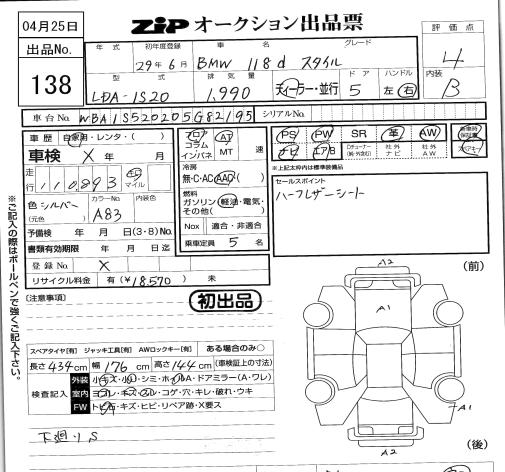 04月25日
ZIP オークション出品票
出品No.
138
年式 初年度登録 車名 グレード
29年6月 BMW 118d スタイル
型式 排気量 ドア ハンドル
LDA-1S20 1,990 ディーラー・並行 5 左 右
評価点
4
内装
B
車台No. WBA1S520205G82195 シリアルNo.
車歴 自家用・レンタ・( )
車検 X 年 月
走行 110,893 キロ マイル
色 シルバー (元色) カラーNo. A83 内装色
予備検 年 月 日(3・8)No.
書類有効期限 年 月 日迄
登録No. X
リサイクル料金 有(¥18,570) 未
フロア コラム インパネ AT MT 速
冷房
無・C・AC・AAC・( )
燃料
ガソリン・軽油・電気・その他( )
Nox 適合・非適合
乗車定員 5 名
PS PW SR 革 AW
ナビ エアB Dチューナー 社外ナビ 社外AW
※上記太枠内は標準装備品
セールスポイント
ハーフレザーシート
※ご記入の際はボールペンで強くご記入下さい。
(注意事項)
初出品
スペアタイヤ[有] ジャッキ工具[有] AWロックキー[有] ある場合のみ○
長さ 434cm 幅 176cm 高さ 144cm (車検証上の寸法)
検査記入
外装 小キズ・小凹・シミ・ホイルA・ドアミラー(A・ワレ)
室内 ヨゴレ・キズ・スレ・コゲ・穴・キレ・破れ・ウキ
FW トビ石・キズ・ヒビ・リペア跡・X要ス
下廻りS
A2
(前)
A1
A1
A2
(後)